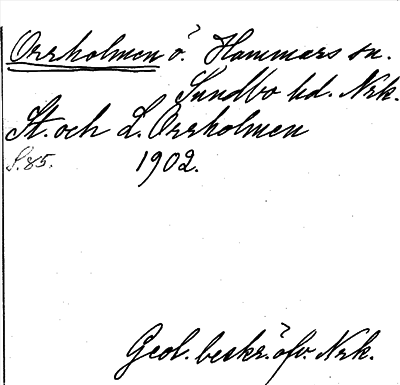 Orrholmen ö. Hammars sn.
Sundbo hd. Nrk.
St. och L. Orrholmen
S. 85. 1902.
Geol. beskr. öfv. Nrk.